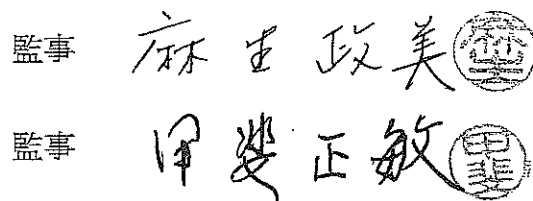 監事 麻生政美 麻生
監事 甲斐正敏 甲斐